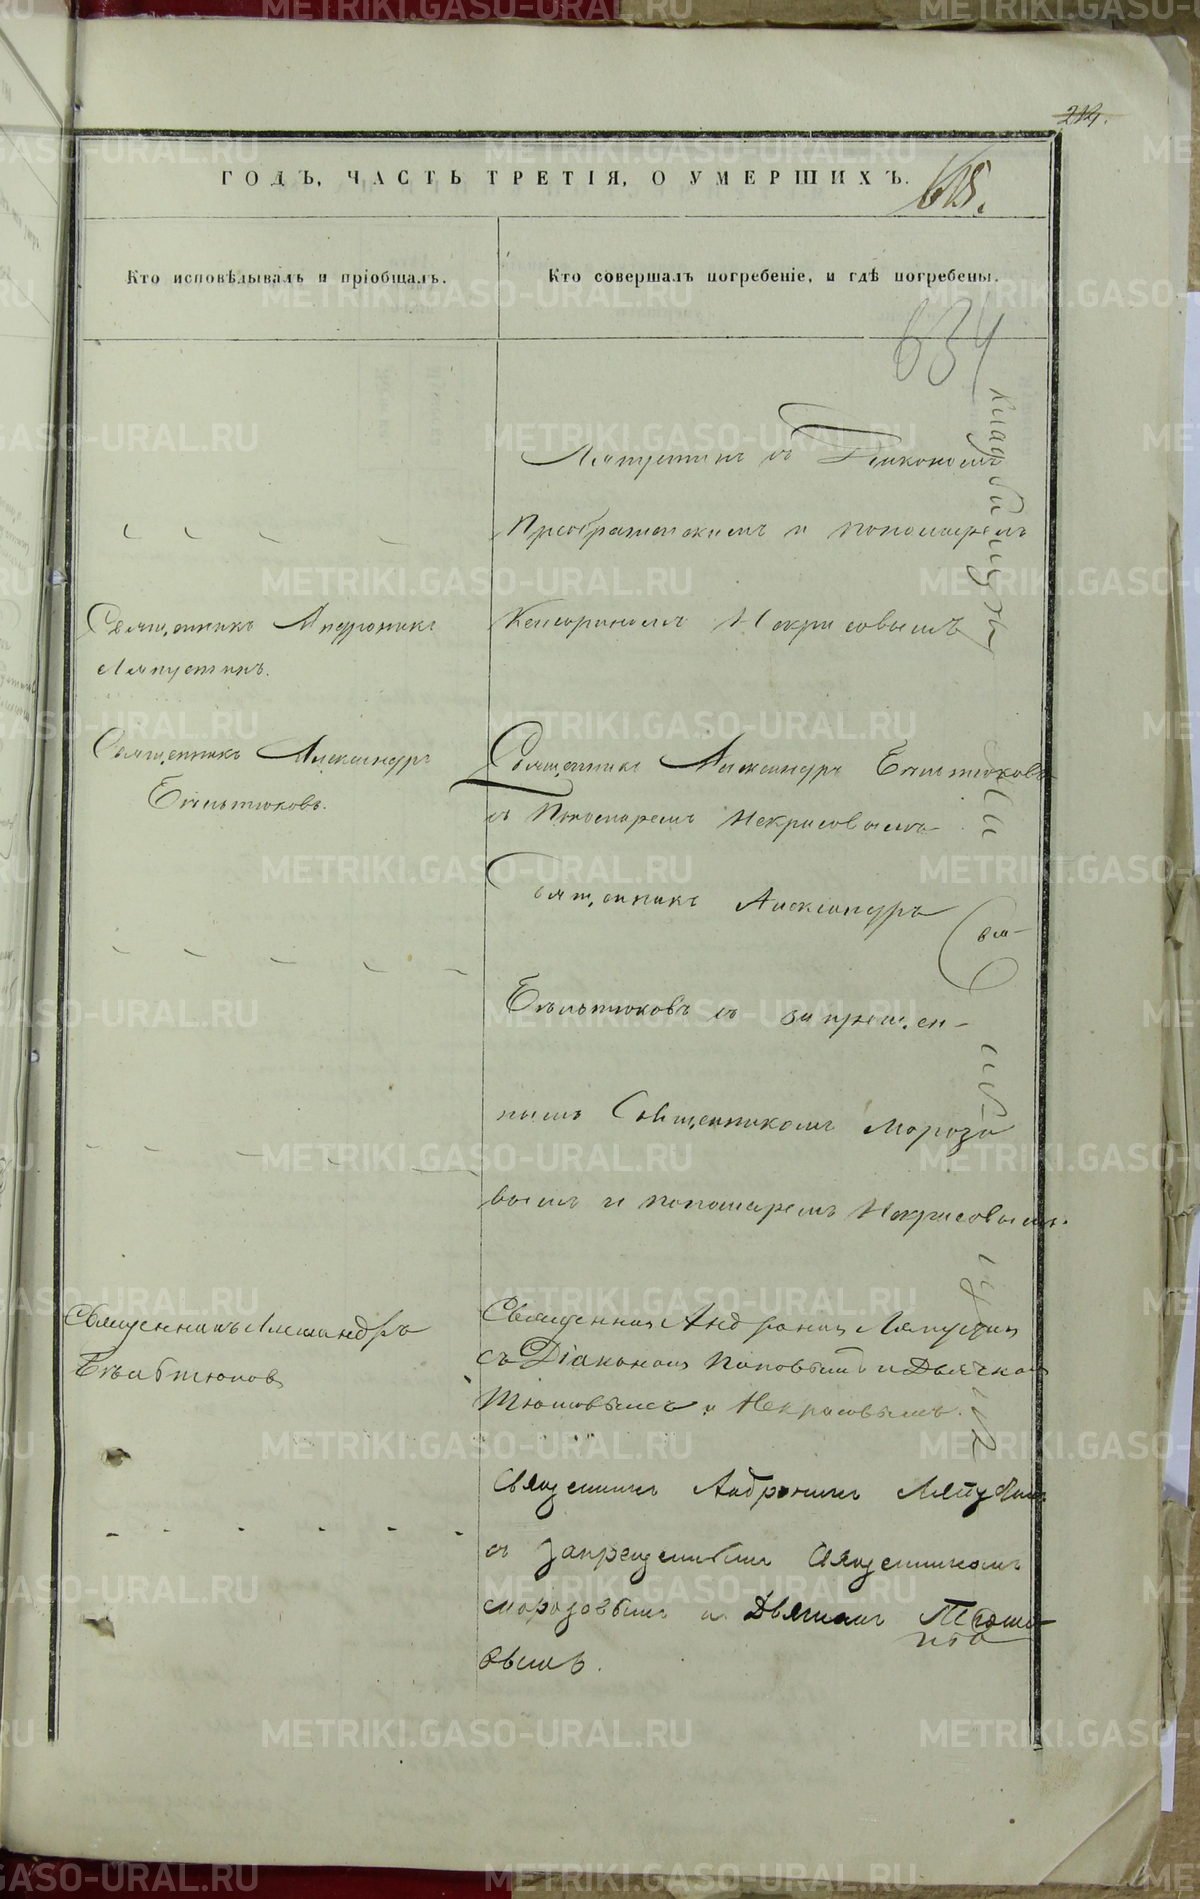 214.
ГОДЪ, ЧАСТЬ ТРЕТІЯ, О УМЕРШИХЪ.
Кто исповѣдывалъ и пріобщалъ.
Кто совершалъ погребеніе, и гдѣ погребены.
634
Ляпустинъ съ Діакономъ
Преображенскимъ и пономаремъ
Священникъ Андроникъ
Ляпустинъ.
Некрасовымъ
Священникъ Александръ
Бѣльтюковъ.
Священникъ Александръ Бѣльтюковъ
съ Пономаремъ Некрасовымъ
Священникъ Александръ
Бѣльтюковъ съ запрещен-
нымъ Священникомъ Морозо
вымъ и пономаремъ Некрасовымъ.
Священникъ Александръ
Бѣльтюковъ
Священникъ Андроникъ Ляпустинъ
съ Діакономъ Поповымъ и Дьячком
и Некрасовымъ.
Священникъ Андроникъ Ляпустинъ
съ запрещеннымъ Священникомъ
Морозовымъ и Дьячкомъ
вымъ.
кладбищѣ
METRIKI.GASO-URAL.RU